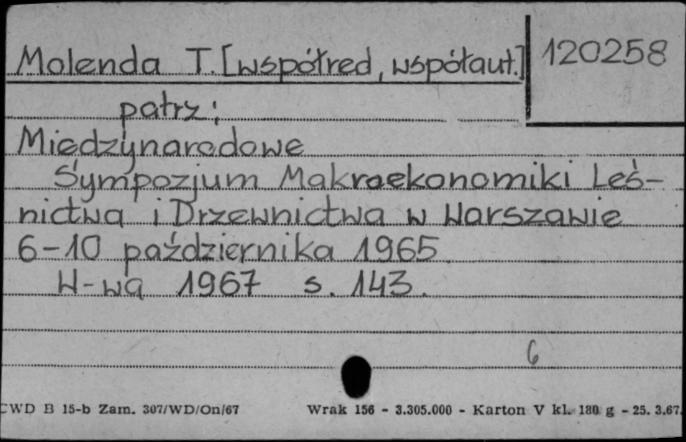 Molenda T. [współred, współaut.] 120258
patrz:
Międzynarodowe
Sympozjum Makroekonomiki Leś-
nictwa i Drzewnictwa w Warszawie
6-10 października 1965
W-wa 1967 s. 143.
6
CWD B 15-b Zam. 307/WD/On/67 Wrak 156 - 3.305.000 - Karton V kl. 180 g - 25. 3.67.